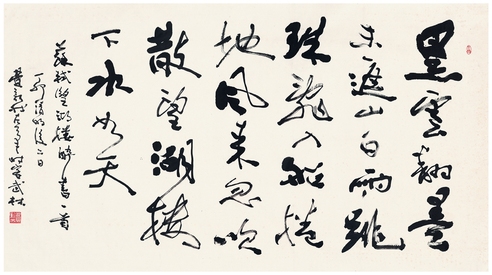 黑雲翻墨
未遮山白雨跳
珠亂入船捲
地風來忽吹
散望湖樓
下水如天
蘇軾望湖樓醉書一首
丁卯清明後二日
時客武林